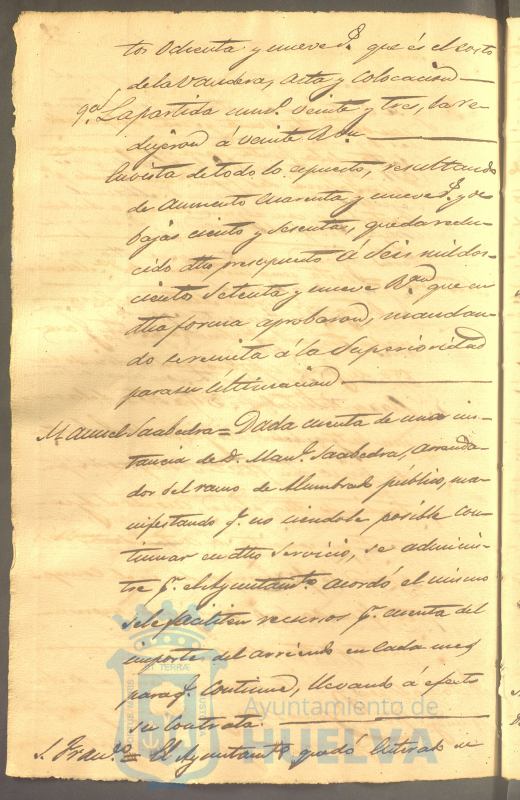 tos ochenta y nueve r.s que es el costo
de la vandera, asta y colocacion
9.a La partida num.o veinte y tres, la re-
dujeron á veinte R.s vn.
En vista de todo lo espuesto, resultando
de aumento cuarenta y nueve r.s y de
vajas ciento y sesenta, queda redu-
cido dho presupuesto á seis mil dos-
cientos setenta y nueve R.s que en
dha forma aprobaron, mandan-
do se remita á la Superioridad
para su ultimacion
Manuel Saabedra = Dada cuenta de una ins-
tancia de D. Man.l Saabedra, arrenda-
dor del ramo de Alumbrado público, ma-
nifestando q.e no siendole posible con-
tinuar en dho servicio, se adminis-
tre p.r el Ayuntam.to acordó el mismo
se le faciliten recursos p.r cuenta del
importe del arriendo en cada mes
para q.e continue, llevando á efecto
su contrata.
= El Ayuntam.to quedó
Ayuntamiento de
HUELVA